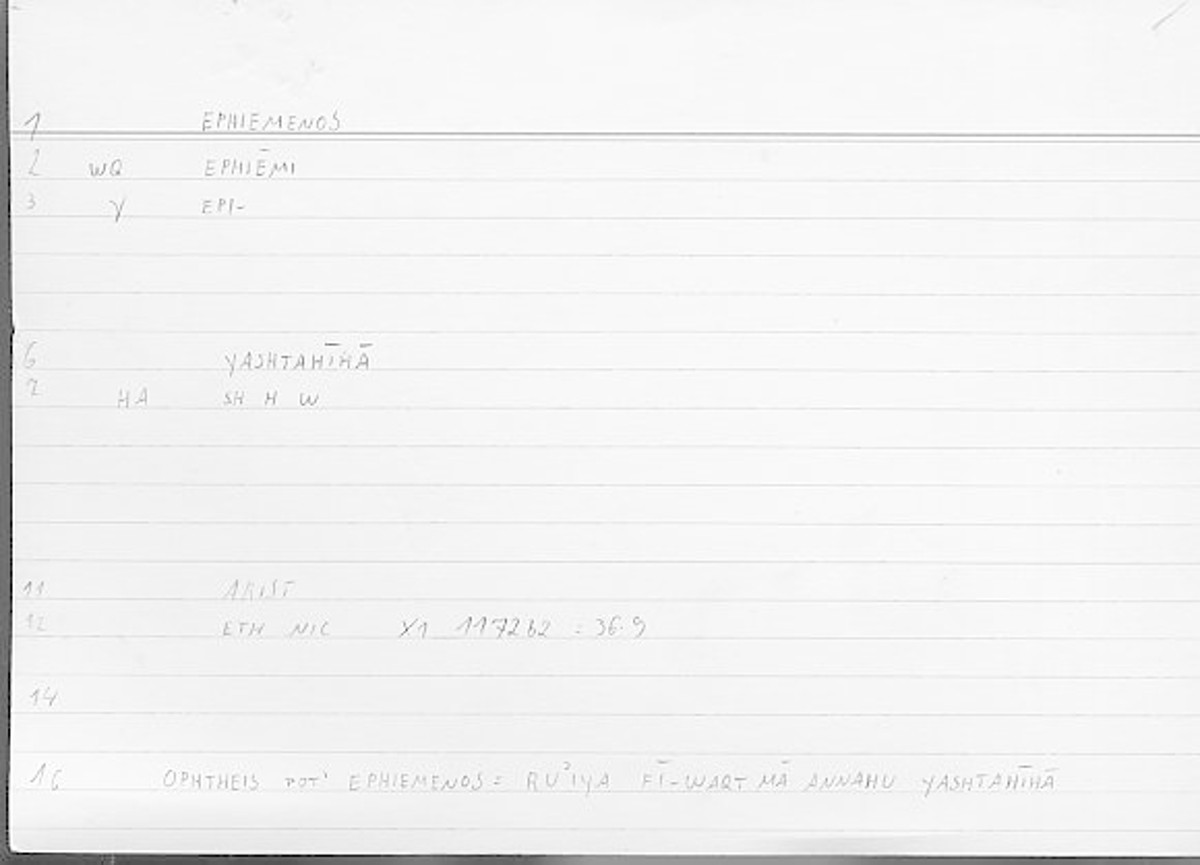 1 EPHIEMENOS
2 WQ EPHIĒMI
3 Y EPI-
6 YASHTAHĪHĀ
7 HA SH H W
11 ARIST
12 ETH NIC X1 1172b2 : 36.9
14
16 OPHTHEIS POT' EPHIEMENOS = RUʾIYA FĪ-WAQT MĀ ANNAHU YASHTAHĪHĀ